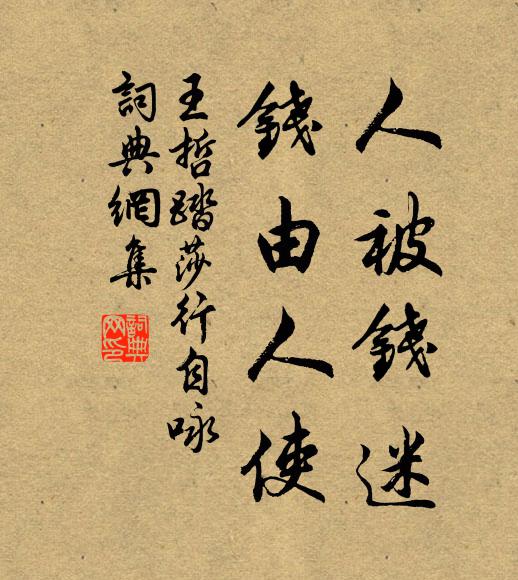 人被錢迷
錢由人使
王哲踏莎行自咏
詞典網集
詞典
网印